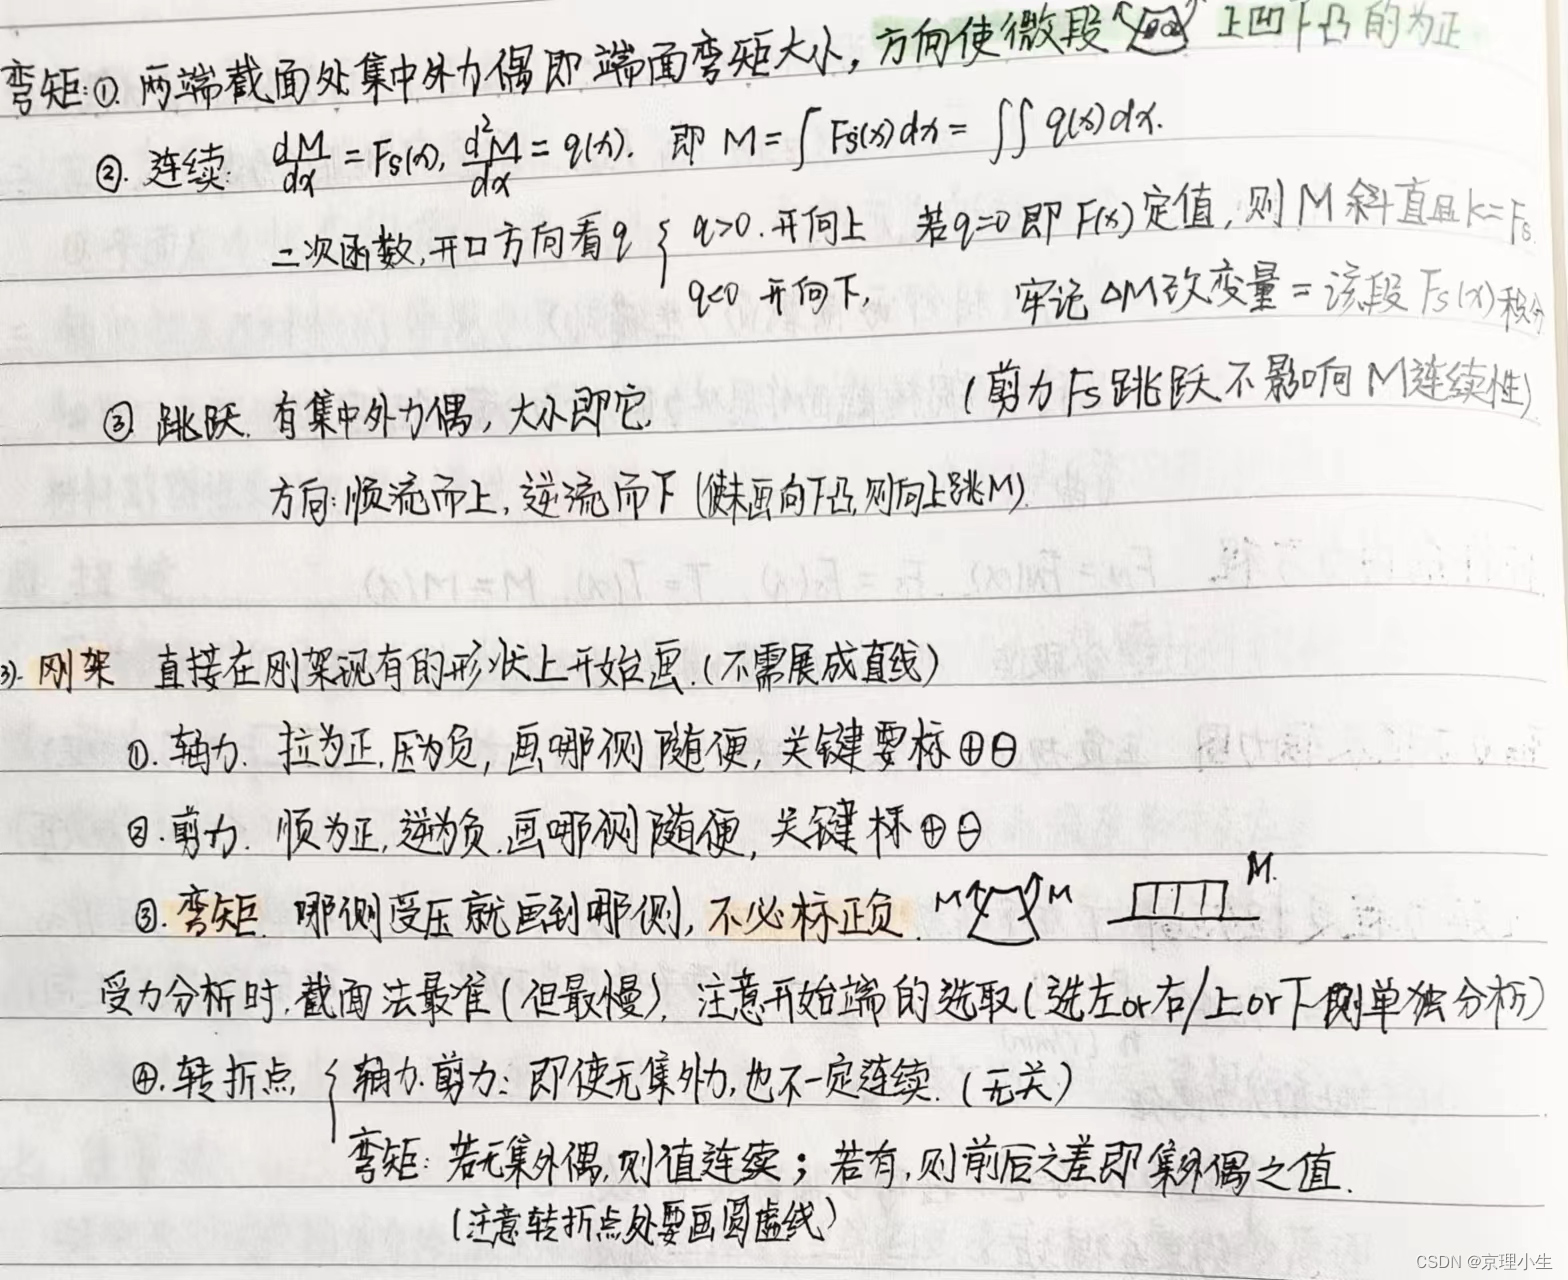 弯矩:①. 两端截面处集中外力偶即端面弯矩大小, 方向使微段 上凹下凸的为正
②. 连续: dM/dx = Fs(x), d²M/dx = q(x). 即 M = ∫Fs(x)dx = ∬q(x)dx.
二次函数,开口方向看q { q>0. 开向上 若q=0即F(x)定值, 则M斜直且k=Fs.
q<0 开向下, 牢记 ΔM改变量 = 该段Fs(x)积分
(剪力Fs跳跃不影响M连续性)
③ 跳跃. 有集中外力偶, 大小即它.
方向: 顺流而上, 逆流而下 (使未画向下凸, 则向上跳M).
3). 刚架 直接在刚架现有的形状上开始画.(不需展成直线)
①. 轴力. 拉为正.压为负, 画哪侧随便, 关键要标⊕⊖
②. 剪力. 顺为正, 逆为负.画哪侧随便, 关键标⊕⊖
③. 弯矩. 哪侧受压就画到哪侧, 不必标正负. M M M.
受力分析时.截面法最准(但最慢), 注意开始端的选取(选左or右/上or下侧单独分析)
④. 转折点 { 轴力.剪力: 即使无集外力, 也不一定连续. (无关)
弯矩: 若无集外偶,则值连续; 若有, 则前后之差即集外偶之值.
(注意转折点处要画圆虚线)
CSDN @京理小生